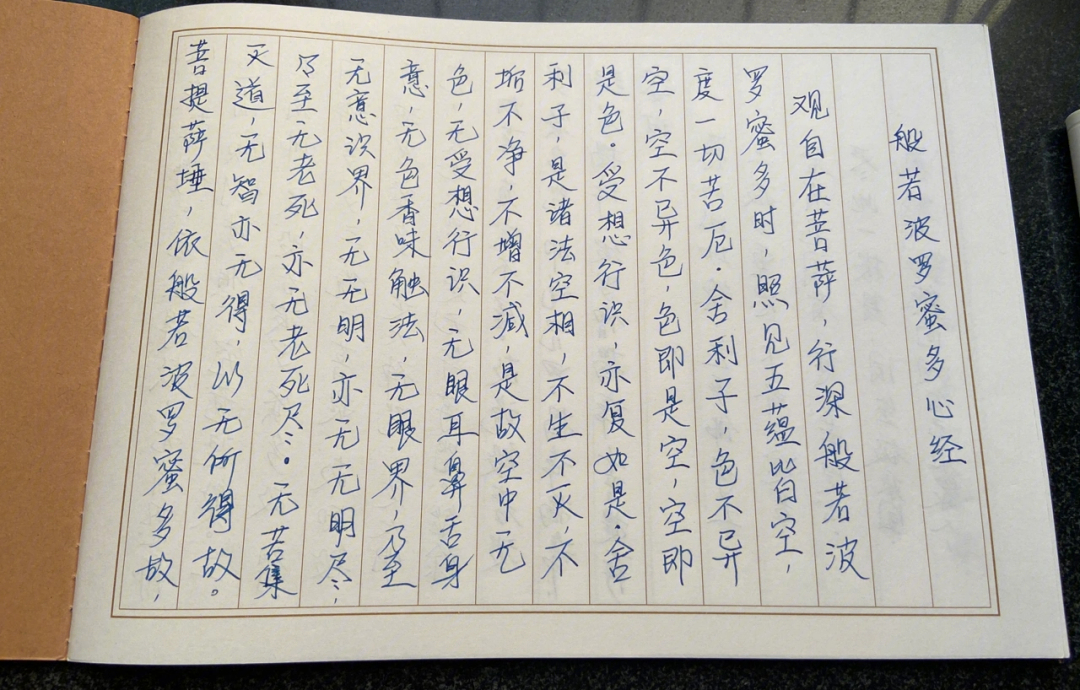 般若波罗蜜多心经
观自在菩萨，行深般若波
罗蜜多时，照见五蕴皆空，
度一切苦厄．舍利子，色不异
空，空不异色，色即是空，空即
是色．受想行识，亦复如是．舍
利子，是诸法空相，不生不灭，不
垢不净，不增不减，是故空中无
色，无受想行识，无眼耳鼻舌身
意，无色香味触法，无眼界，乃至
无意识界，无无明，亦无无明尽，
乃至无老死，亦无老死尽．无苦集
灭道，无智亦无得，以无所得故。
菩提萨埵，依般若波罗蜜多故，